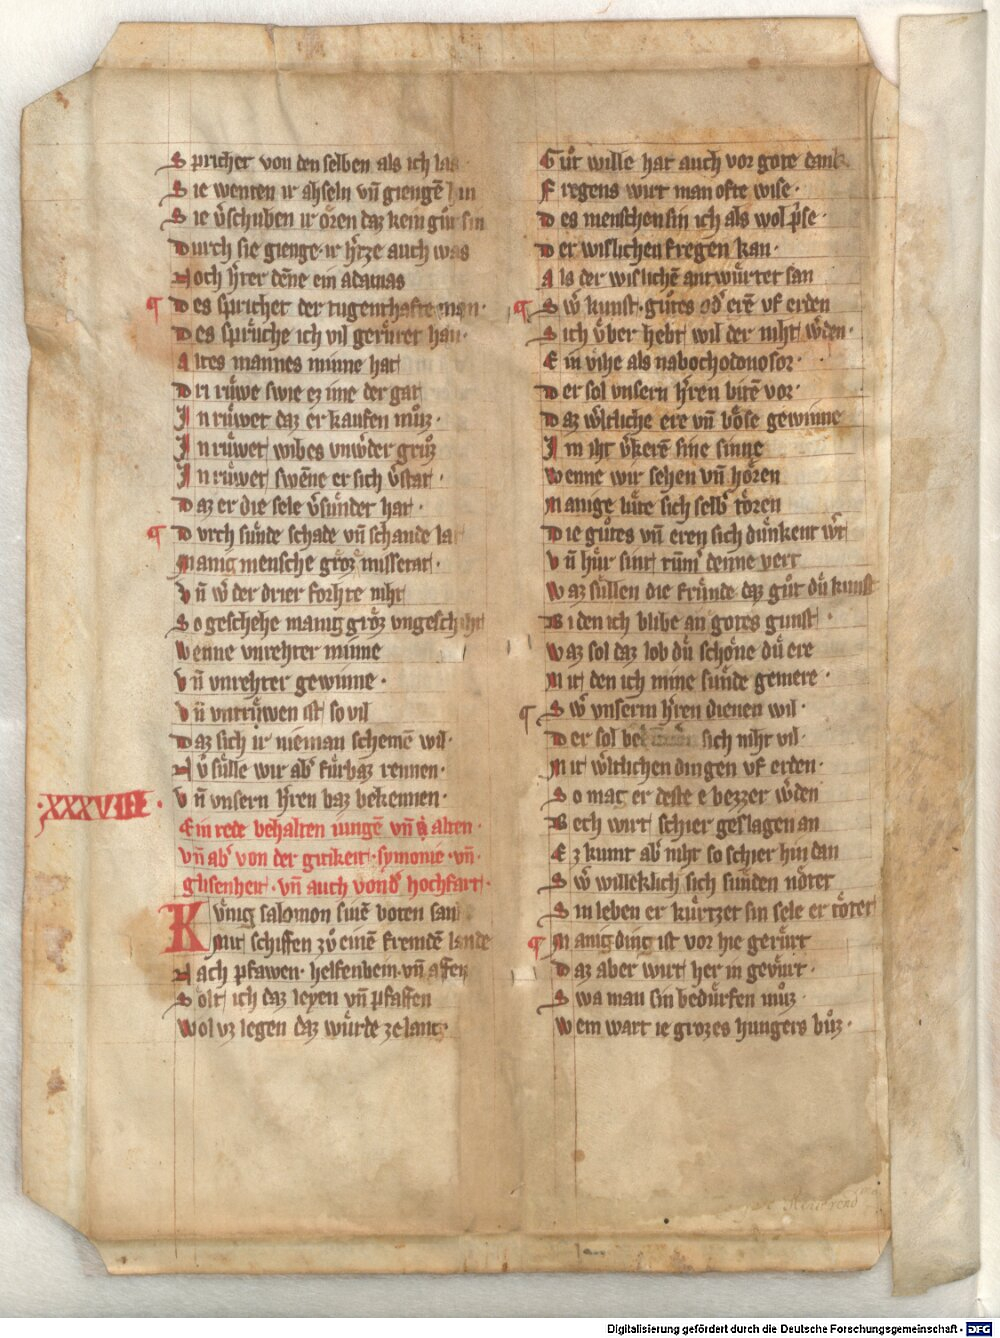 Spricher von den selben als ich las
Sie wenten ir ahseln vn̄ giengē hin
Sie v̓schuben ir oͤren daz kein guͤt sin
Durch sie gienge ir h̓tze auch was
Noch h̓ter deñe ein adamas
¶ Des sprichet der tugenthafte man·
Des spruͤche ich vil geruͤret han·
Altes mannes minne hat
Dri ruͤwe swie ez ime der gat
In ruͤwet daz er kaufen muͦz·
In ruͤwet wibes vnw̓der gruͦz
In ruͤwet sweñe er sich v̓stat·
Daz er die sele v̓suͤndet hat·
¶ Durch suͤnde schade vn̄ schande lat
Manig mensche groz missetat·
Vn̄ w̓ der drier forhte niht
So geschehe manig groͤz vngeschiht
Wenne vnrehter minne
Vn̄ vnrehter gewinne·
Vn̄ vntruͤwen ist so vil
Daz sich ir nieman schemē wil·
Nv̓ suͤlle wir ab̓ fuͤrbaz rennen·
Vn̄ vnsern h̓ren baz bekennen·
·XXXVIII·
Ein rede behalten iungē vn̄ alten·
vn̄ ab̓ von der gitikeit·symonie·vn̄·
glisenheit·vn̄ auch von d̓ hochfart·
Kuͤnig salomon sinē boten sant
Mit schiffen zuͦ einē fremdē lande
Nach pfawen·helfenbein·vn̄ affen
Solt ich daz leyen vn̄ pfaffen
Wol vz legen daz wuͤrde ze lanc·
Guͦt wille hat auch vor gote dank
Fregens wirt man ofte wise·
Des menschen sin ich als wol p̓se·
Der wislichen fregen kan·
Als der wislichē antwuͤrten san
¶ Sw̓ kunst·guͦtes od̓ erē vf erden
Sich vͤber hebt wil der niht w̓den·
Ein vihe als nabochodonosor·
Der sol vnsern h̓ren bitē vor·
Daz w̓ltliche ere vn̄ boͤse gewinne
Im iht v̓kerē sine sinne
Wenne wir sehen vn̄ hoͤren
Manige luͤte sich selb̓ toͤren
Die guͦtes vn̄ eren sich duͤnkent w̓t
Vn̄ huͤr sint tum̓ denne vert
Waz suͤllen die fruͤnde daz guͦt duͤ kunst
Bi den ich blibe an gotes gunst·
Waz sol daz lob duͤ schoͤne duͤ ere
Mit den ich mine suͤnde gemere·
¶ Sw̓ vnserm h̓ren dienen wil·
Der sol sich niht vil·
Mit w̓ltlichen dingen vf erden·
So mag er deste e bezzer w̓den
Bech wirt schier geslagen an
Ez kumt ab̓ niht so schier hin dan
Sw̓ willeklich sich suͤnden noͤtet
Sin leben er kuͤrtzet sin sele er toͤtet
¶ Manig ding ist vor hie geruͤrt
Daz aber wirt her in gevuͤrt·
Swa man sin beduͤrfen muͦz·
Wem wart ie grozes hungers buͦz·
Digitalisierung gefördert durch die Deutsche Forschungsgemeinschaft - DFG